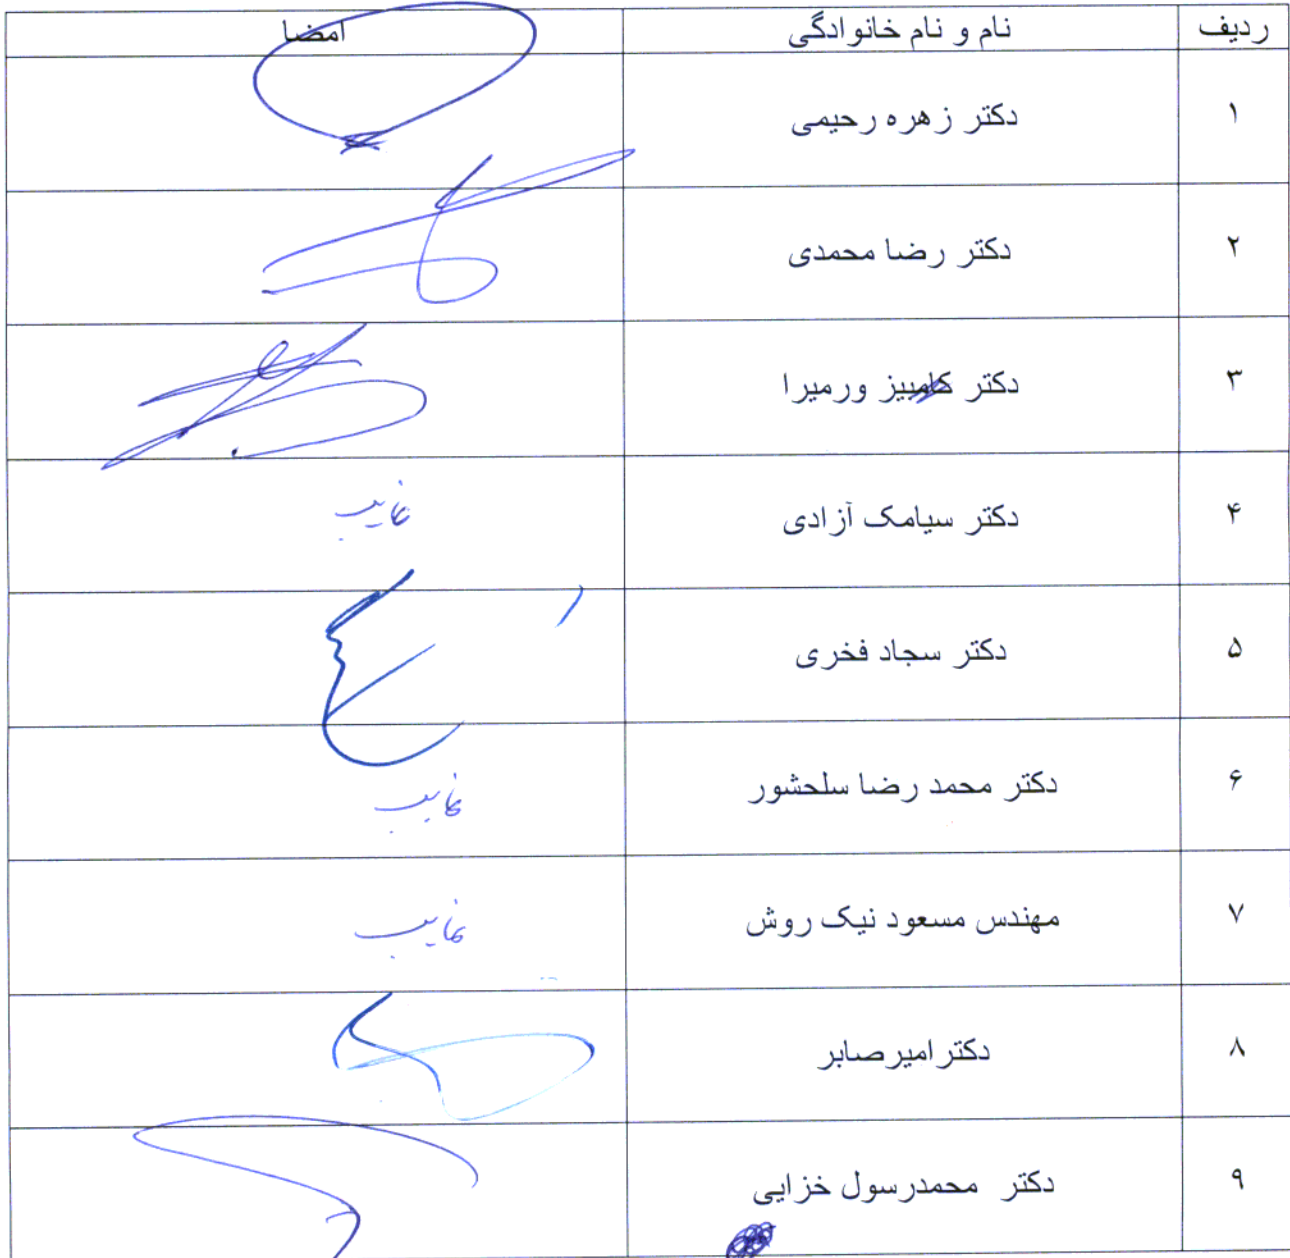 ردیف نام و نام خانوادگی امضا
۱ دکتر زهره رحیمی
۲ دکتر رضا محمدی
۳ دکتر کامبیز ورمیرا
۴ دکتر سیامک آزادی غایب
۵ دکتر سجاد فخری
۶ دکتر محمد رضا سلحشور غایب
۷ مهندس مسعود نیک روش غایب
۸ دکتر امیرصابر
۹ دکتر محمدرسول خزایی